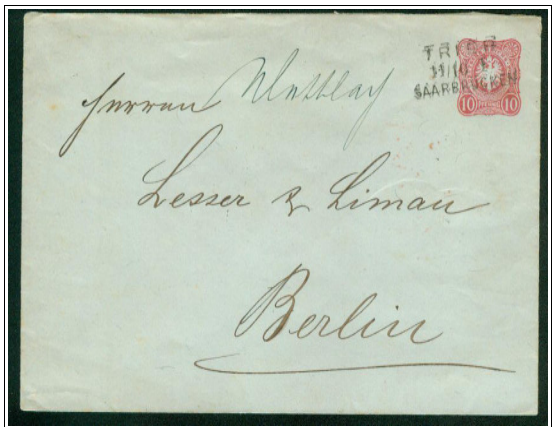 TRIER
11/10
SAARBRÜCKEN
10 10
Herren Mettlach
Lesser & Liman
Berlin